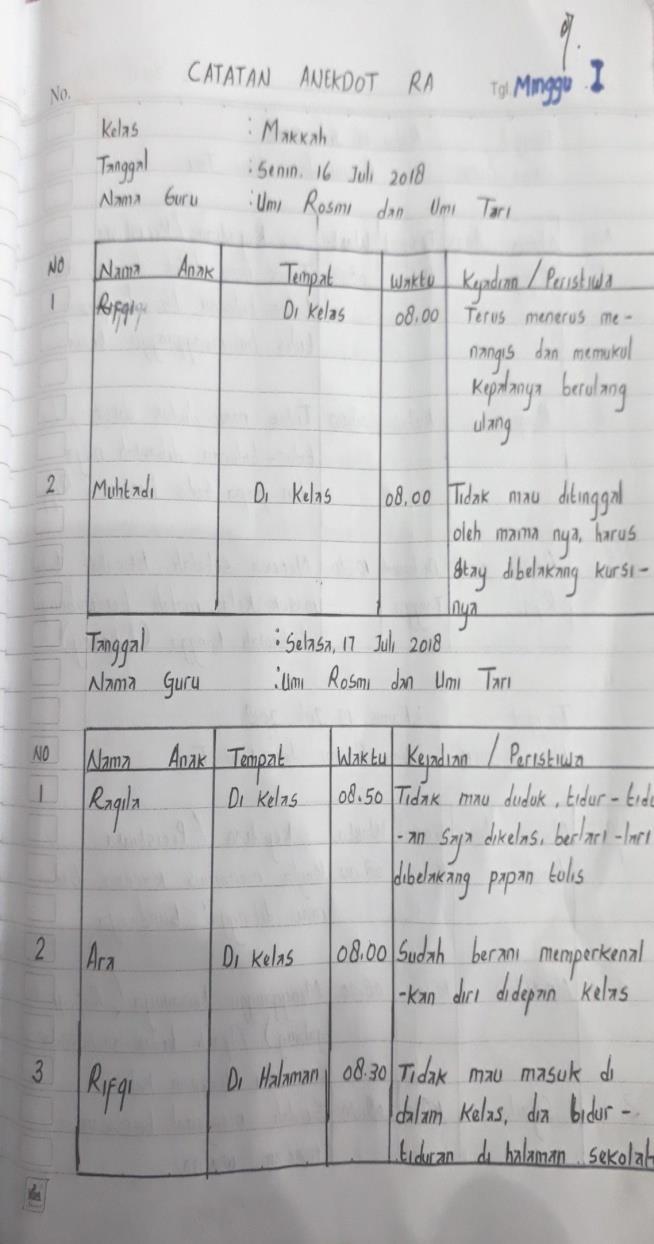 9.
CATATAN ANEKDOT RA
No.
Tgl. Minggu I
Kelas : Makkah
Tanggal : Senin. 16 Juli 2018
Nama Guru : Umi Rosmi dan Umi Tari
NO Nama Anak Tempat Waktu Kejadian / Peristiwa
1 Rifqi Di Kelas 08.00 Terus menerus me-
nangis dan memukul
Kepalanya berulang
ulang
2 Muhtadi Di Kelas 08.00 Tidak mau ditinggal
oleh mama nya, harus
stay dibelakang kursi-
nya
Tanggal : Selasa, 17 Juli 2018
Nama Guru : Umi Rosmi dan Umi Tari
NO Nama Anak Tempat Waktu Kejadian / Peristiwa
1 Ragila Di Kelas 08.50 Tidak mau duduk, tidur-tidu
-an saja dikelas, berlari-lari
dibelakang papan tulis
2 Ara Di Kelas 08.00 Sudah berani memperkenal
-kan diri didepan kelas
3 Rifqi Di Halaman 08.30 Tidak mau masuk di
dalam kelas, dia tidur-
tiduran di halaman sekolah